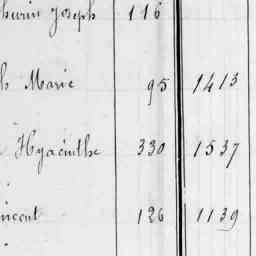 hurin Joseph 116
h Marie 95 1413
Hyacinthe 330 1537
incent 126 1139